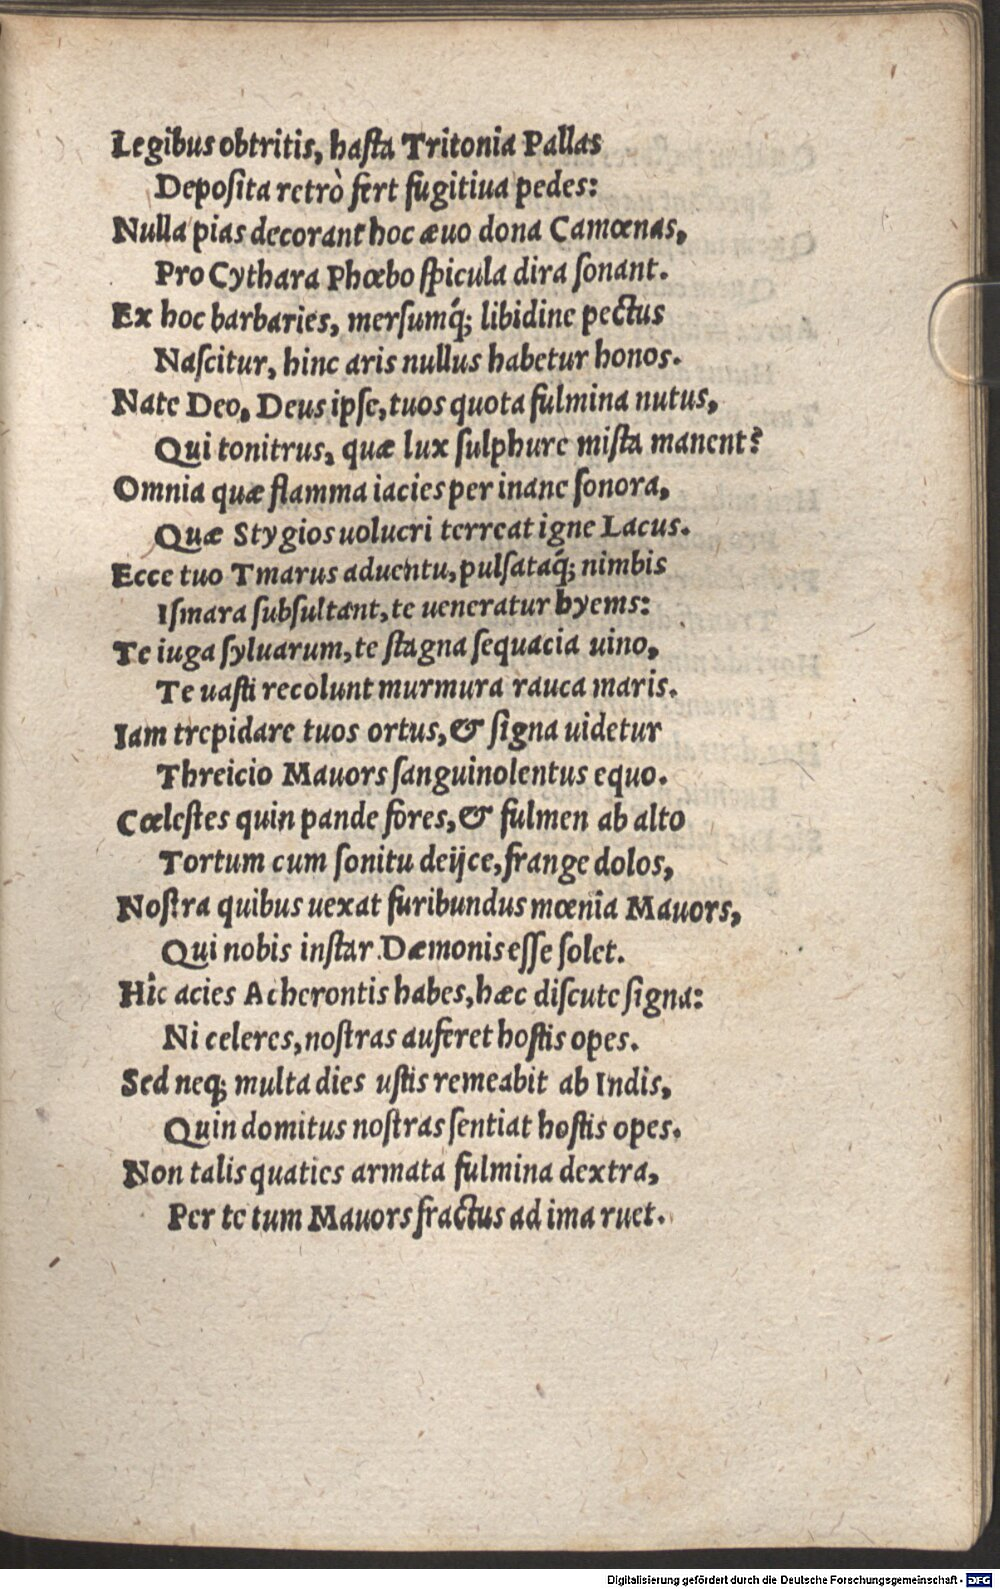 Legibus obtritis, hasta Tritonia Pallas
Deposita retrò fert fugitiua pedes:
Nulla pias decorant hoc æuo dona Camœnas,
Pro Cythara Phœbo spicula dira sonant.
Ex hoc barbaries, mersumq́; libidine pectus
Nascitur, hinc aris nullus habetur honos.
Nate Deo, Deus ipse, tuos quota fulmina nutus,
Qui tonitrus, quæ lux sulphure mista manent?
Omnia quæ flamma iacies per inane sonora,
Quæ Stygios uolucri terreat igne Lacus.
Ecce tuo Tmarus aduentu, pulsataq́; nimbis
Ismara subsultant, te ueneratur hyems:
Te iuga syluarum, te stagna sequacia uino,
Te uasti recolunt murmura rauca maris.
Iam trepidare tuos ortus, & signa uidetur
Threicio Mauors sanguinolentus equo.
Cœlestes quin pande fores, & fulmen ab alto
Tortum cum sonitu deijce, frange dolos,
Nostra quibus uexat furibundus mœnia Mauors,
Qui nobis instar Dæmonis esse solet.
Hîc acies Acherontis habes, hæc discute signa:
Ni celeres, nostras auferet hostis opes.
Sed neq; multa dies ustis remeabit ab Indis,
Quin domitus nostras sentiat hostis opes.
Non talis quaties armata fulmina dextra,
Per te tum Mauors fractus ad ima ruet.
Digitalisierung gefördert durch die Deutsche Forschungsgemeinschaft - DFG